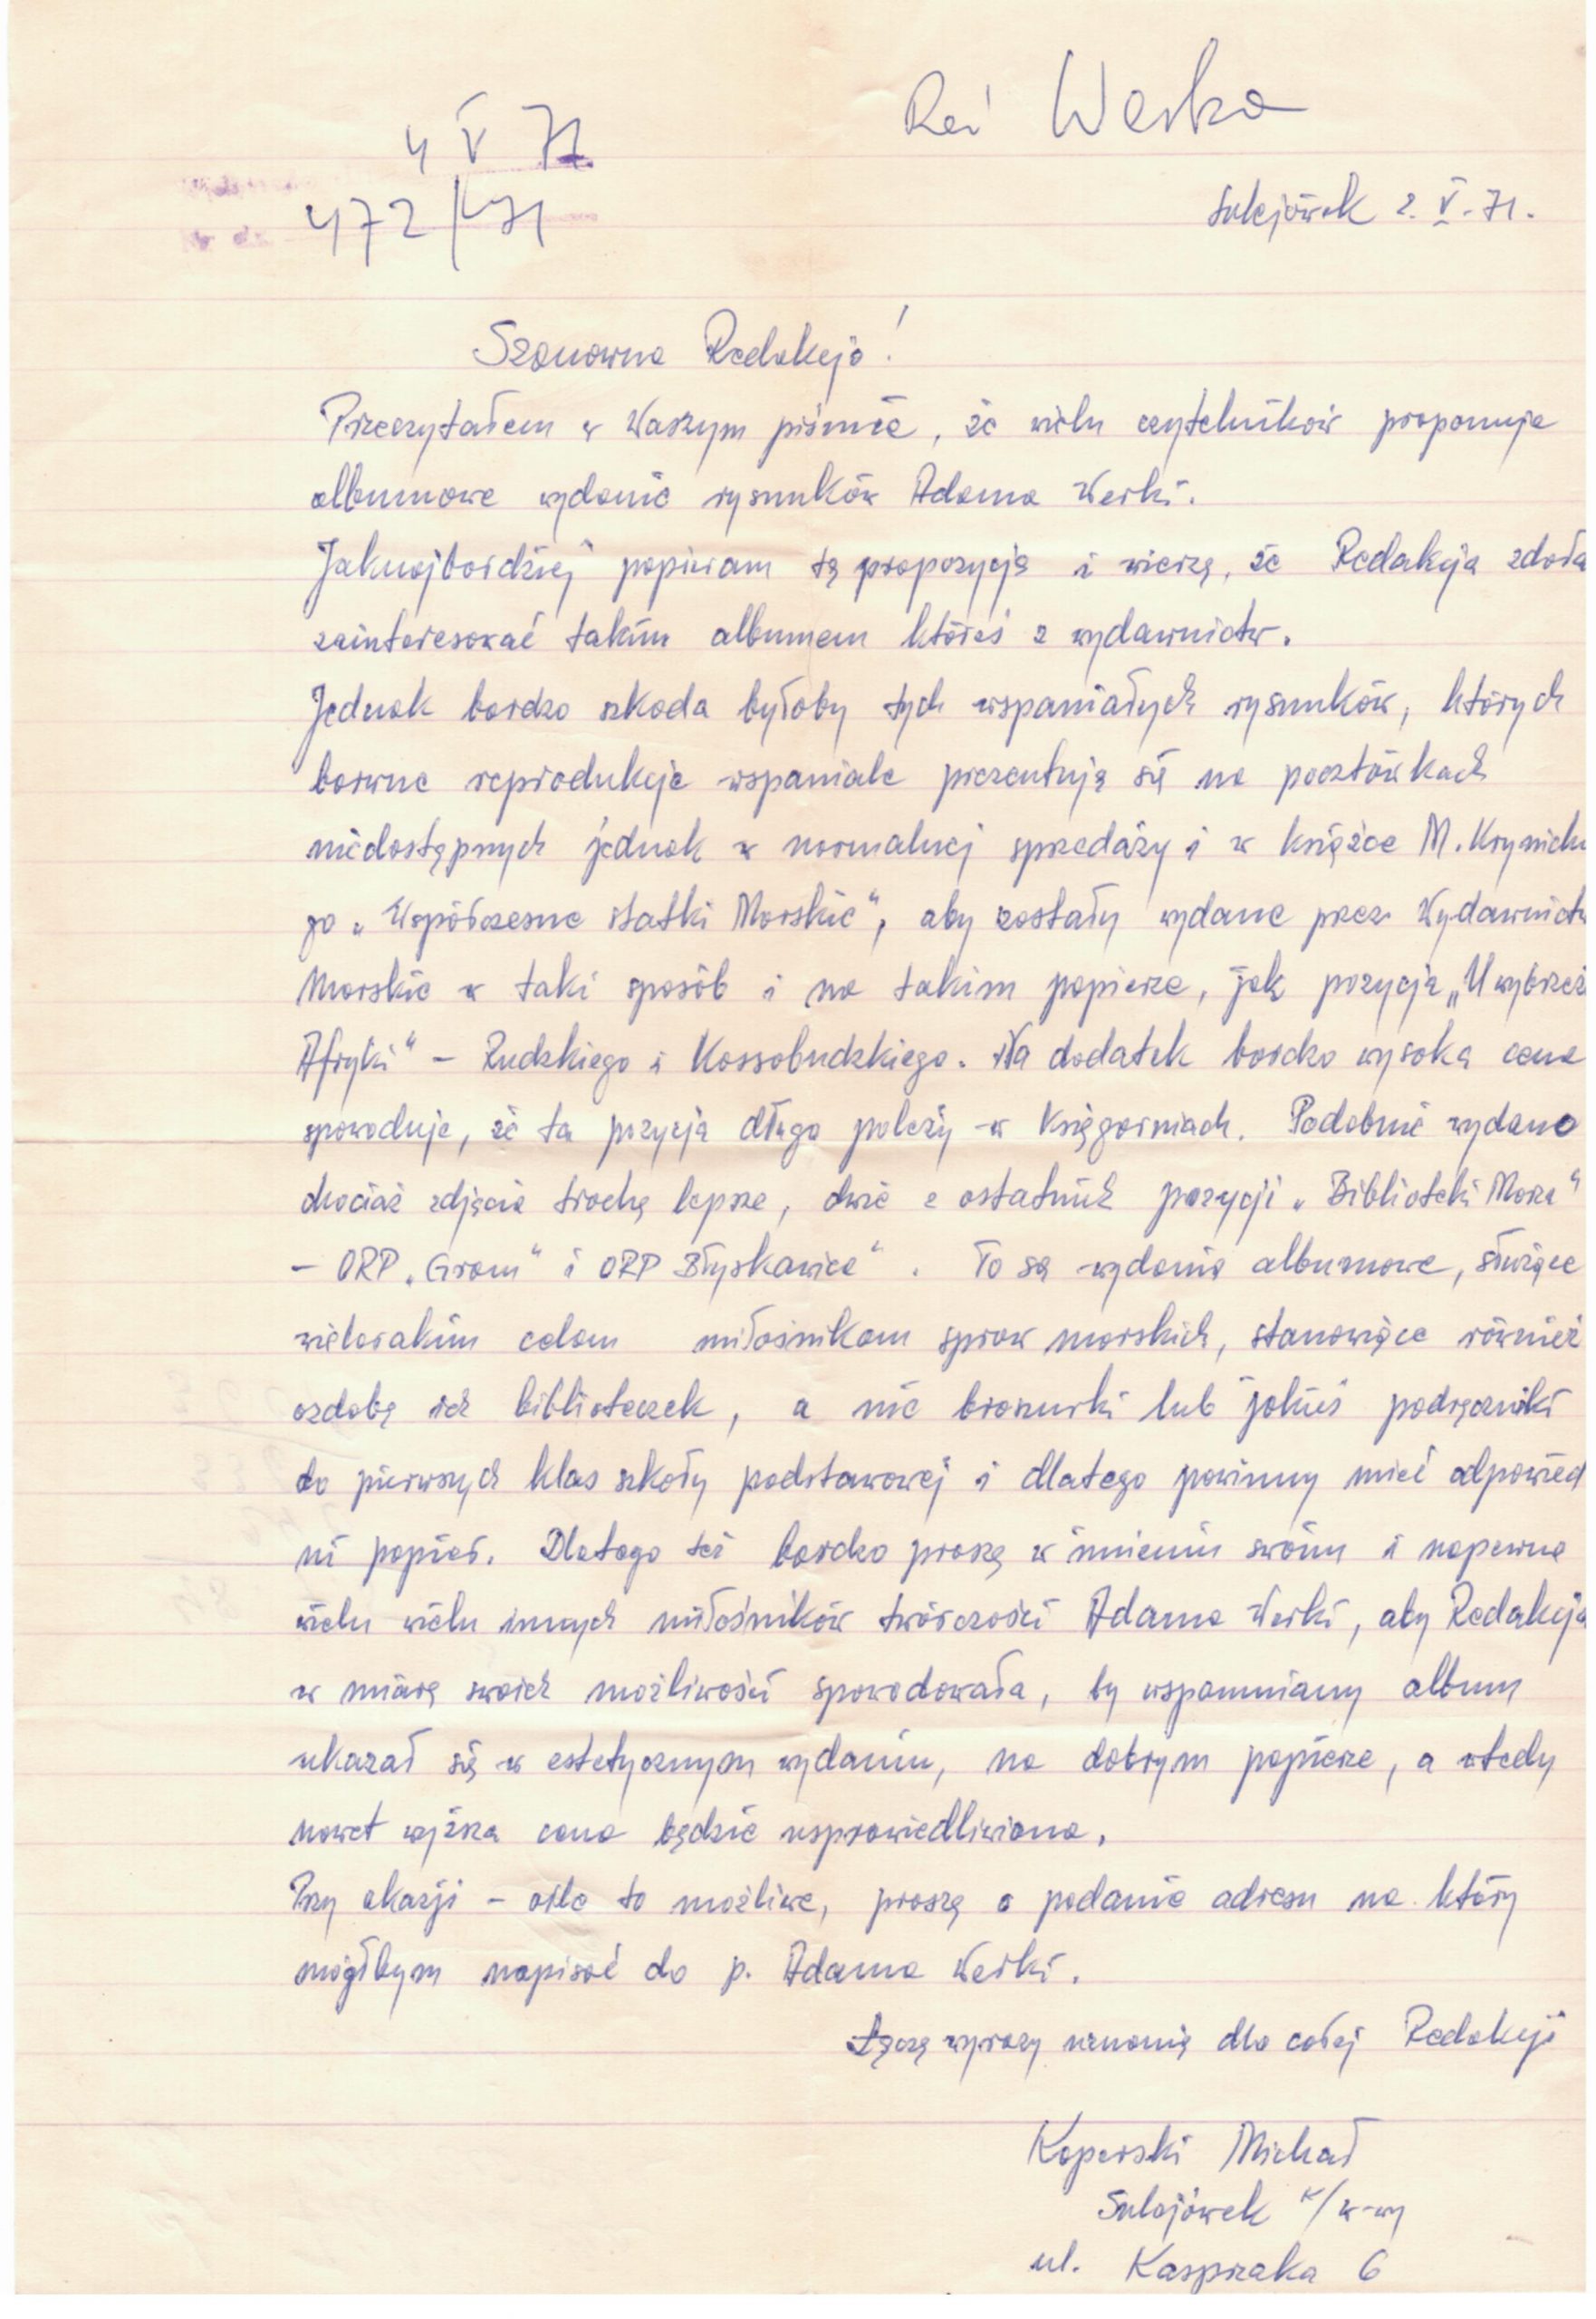 4 V 71
Werka
472/71
Sulejówek 2. V. 71.
Szanowna Redakcjo!
Przeczytałem w Waszym piśmie, że wielu czytelników proponuje
albumowe wydanie rysunków Adama Werki.
Jaknajbardziej popieram tę propozycję i wierzę, że Redakcja zdoła
zainteresować takim albumem któreś z wydawnictw.
Jednak bardzo szkoda byłoby tych wspaniałych rysunków, których
barwne reprodukcje wspaniale prezentują się na pocztówkach
niedostępnych jednak w normalnej sprzedaży i w książce M. Krynicki
go „Współczesne statki Morskie", aby zostały wydane przez Wydawnictw
Morskie w taki sposób i na takim papierze, jak pozycja „U wybrzeż
Afryki" – Rudzkiego i Kossobudzkiego. Na dodatek bardzo wysoka cena
spowoduje, że ta pozycja długo poleży w Księgarniach. Podobnie wydano
chociaż zdjęcia trochę lepsze, dwie z ostatnich pozycji „Biblioteki Morza"
– ORP „Grom" i ORP Błyskawica". To są wydania albumowe, służące
wielorakim celom miłośnikom spraw morskich, stanowiące również
ozdobę ich biblioteczek, a nie broszurki lub jakieś podręczniki
do pierwszych klas szkoły podstawowej i dlatego powinny mieć odpowied
ni papier. Dlatego też bardzo proszę w imieniu swoim i napewno
wielu wielu innych miłośników twórczości Adama Werki, aby Redakcja
w miarę swoich możliwości spowodowała, by wspomniany album
ukazał się w estetycznym wydaniu, na dobrym papierze, a wtedy
nawet wyższa cena będzie usprawiedliwiona.
Przy okazji – oile to możliwe, proszę o podanie adresu na który
mógłbym napisać do p. Adama Werki.
Łączę wyrazy uznania dla całej Redakcji
Koperski Michał
Sulejówek k/W-wy
ul. Kasprzaka 6